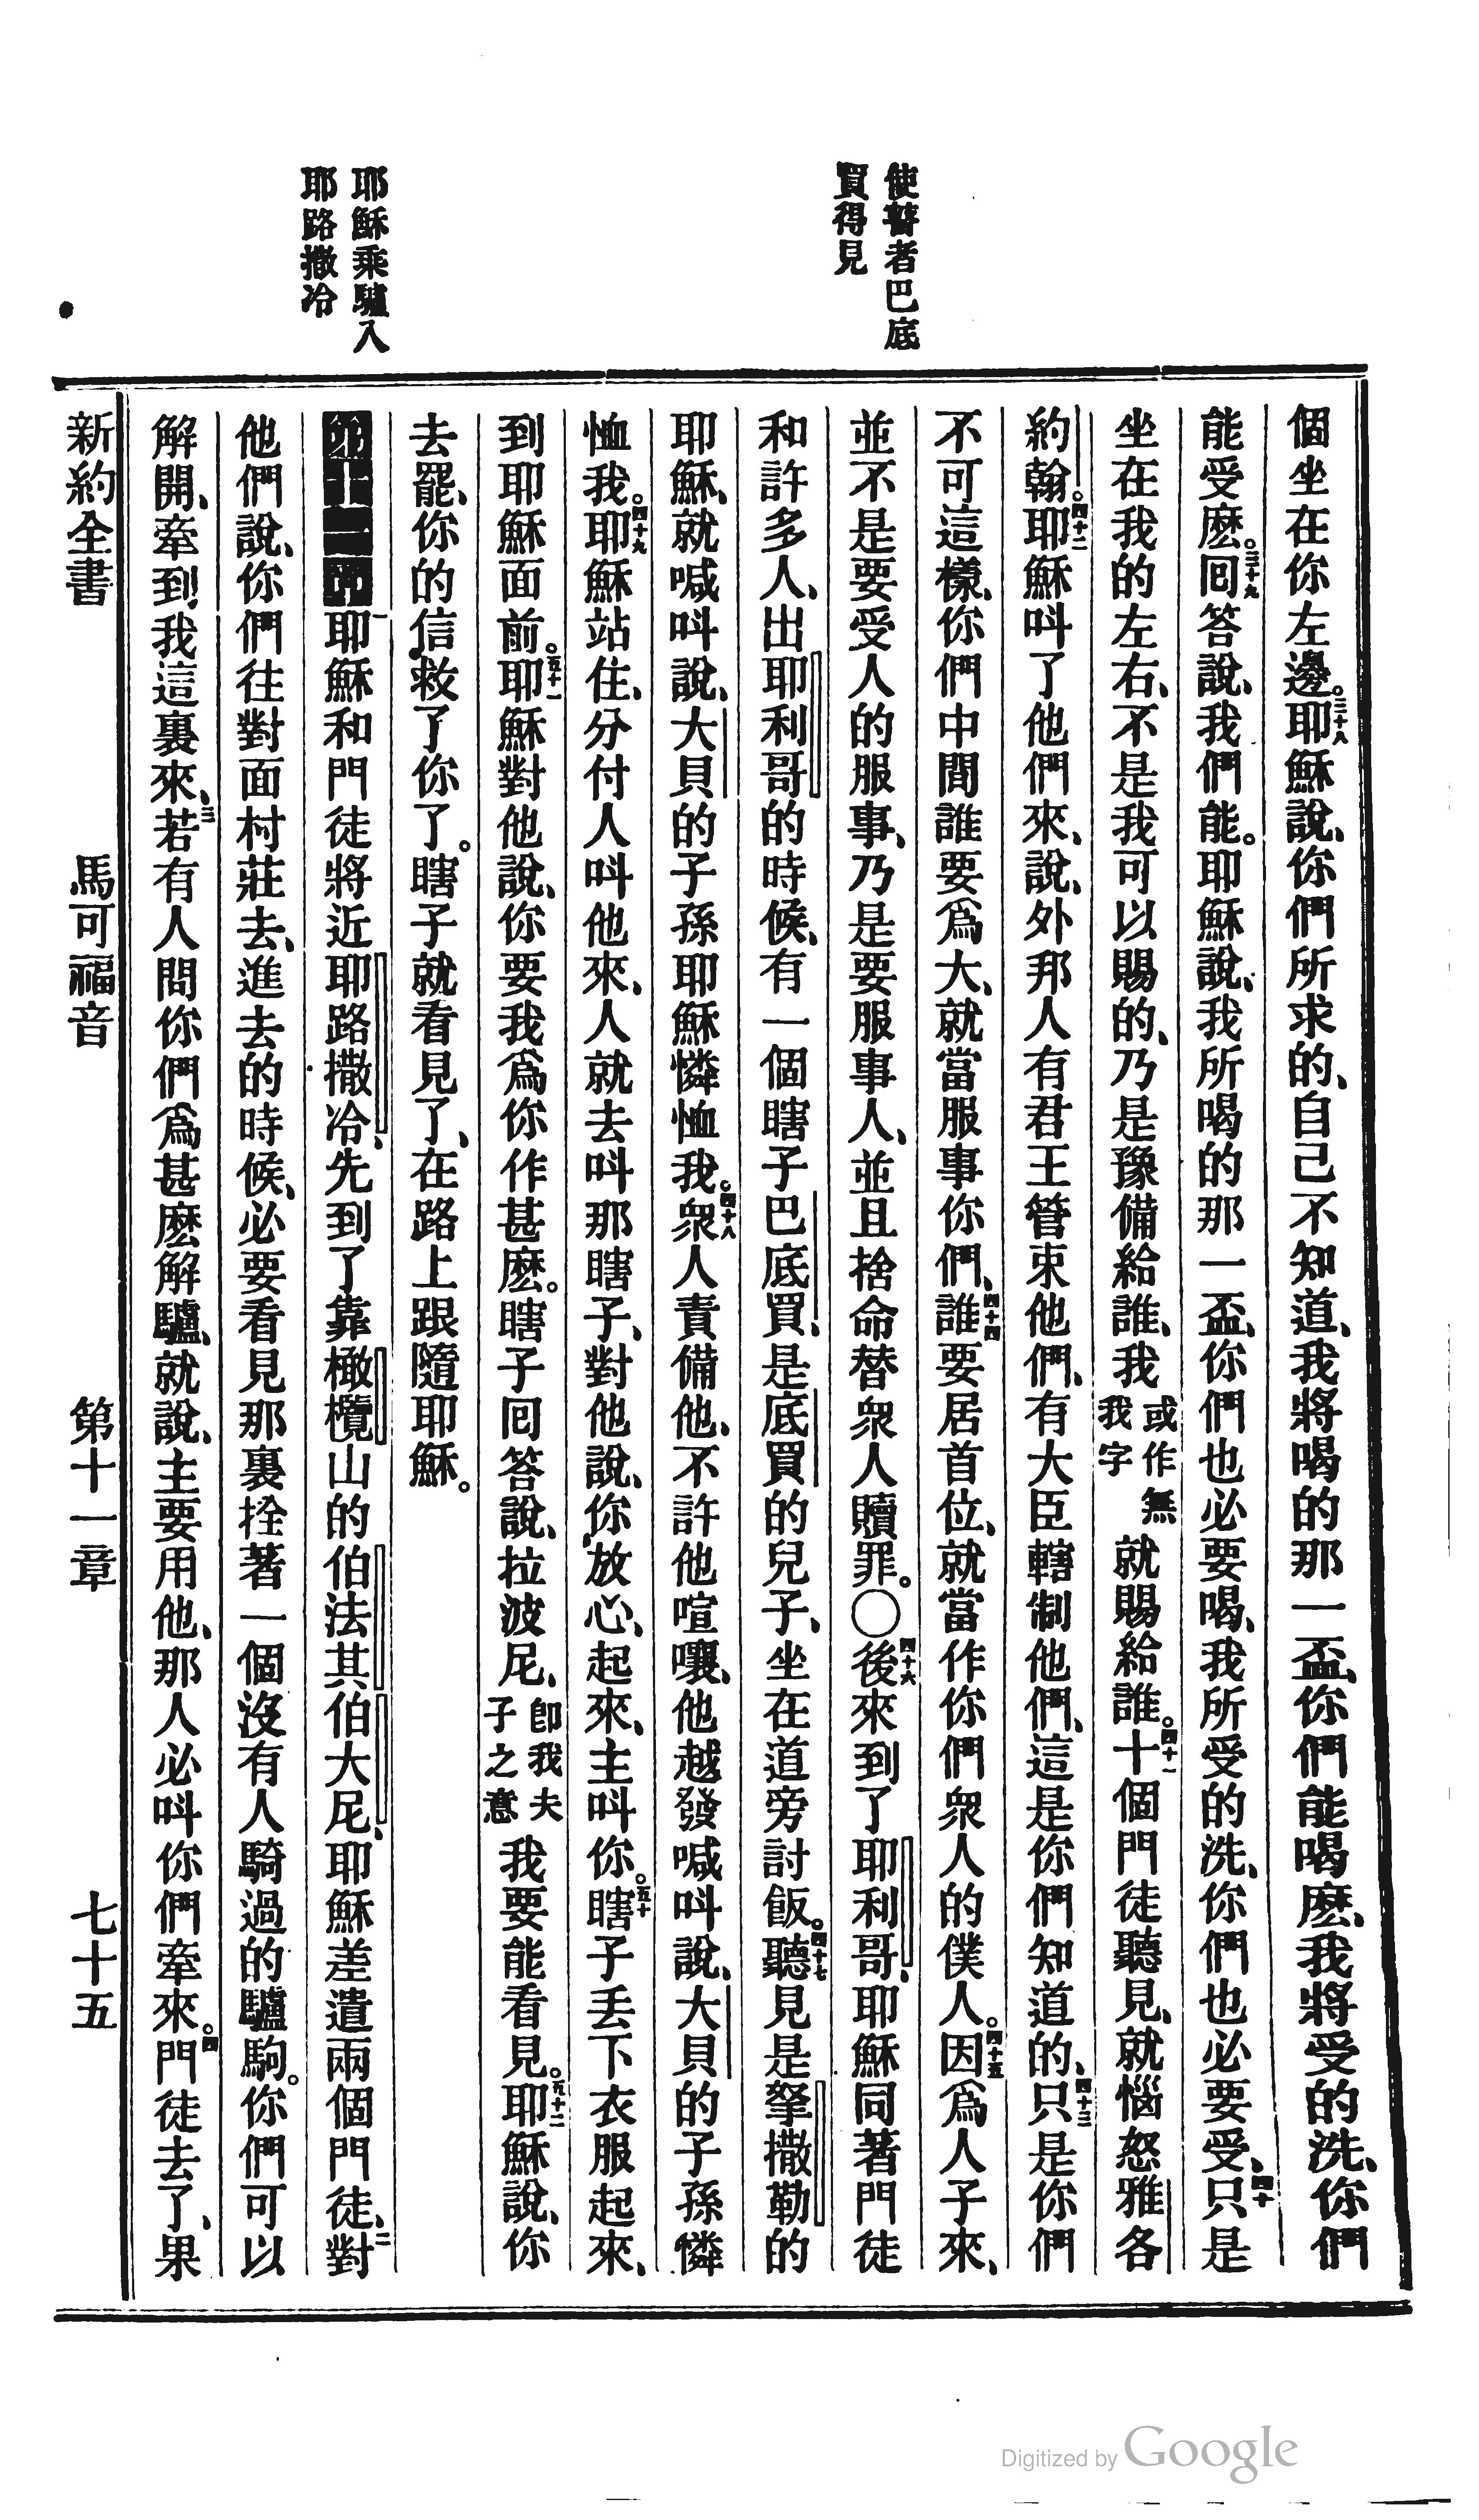 使瞽者巴底
買得見
耶穌乘驢入
耶路撒冷
個坐在你左邊。三十八耶穌說、你們所求的、自己不知道、我將喝的那一盃、你們能喝麽、我將受的洗、你們
能受麽。三十九回答說、我們能。耶穌說、我所喝的那一盃、你們也必要喝、我所受的洗、你們也必要受、四十只是
坐在我的左右、不是我可以賜的、乃是豫備給誰、我或作無我字就賜給誰。四十一十個門徒聽見、就惱怒雅各
約翰。四十二耶穌呌了他們來、說、外邦人有君王管束他們、有大臣轄制他們、這是你們知道的、四十三只是你們
不可這樣、你們中間誰要爲大、就當服事你們、四十四誰要居首位、就當作你們衆人的僕人。四十五因爲人子來、
並不是要受人的服事、乃是要服事人、並且捨命替衆人贖罪。〇四十六後來到了耶利哥、耶穌同著門徒
和許多人、出耶利哥的時候、有一個瞎子巴底買、是底買的兒子、坐在道旁討飯。四十七聽見是拏撒勒的
耶穌、就喊呌說、大貝的子孫耶穌憐恤我。四十八衆人責備他、不許他喧嚷、他越發喊呌說、大貝的子孫憐
恤我。四十九耶穌站住、分付人呌他來、人就去呌那瞎子、對他說、你放心、起來、主呌你。五十瞎子丟下衣服起來、
到耶穌面前。五十一耶穌對他說、你要我爲你作甚麽。瞎子回答說、拉波尼、卽我夫子之意我要能看見。五十二耶穌說、你
去罷、你的信救了你了。瞎子就看見了、在路上跟隨耶穌。
第十一章一耶穌和門徒將近耶路撒冷、先到了靠橄欖山的伯法其伯大尼、耶穌差遣兩個門徒、二對
他們說、你們往對面村莊去、進去的時候、必要看見那裏拴著一個沒有人騎過的驢駒。你們可以
解開、牽到我這裏來、三若有人問你們爲甚麽解驢、就說、主要用他、那人必呌你們牽來。四門徒去了、果
新約全書 馬可福音 第十一章 七十五
Digitized by Google